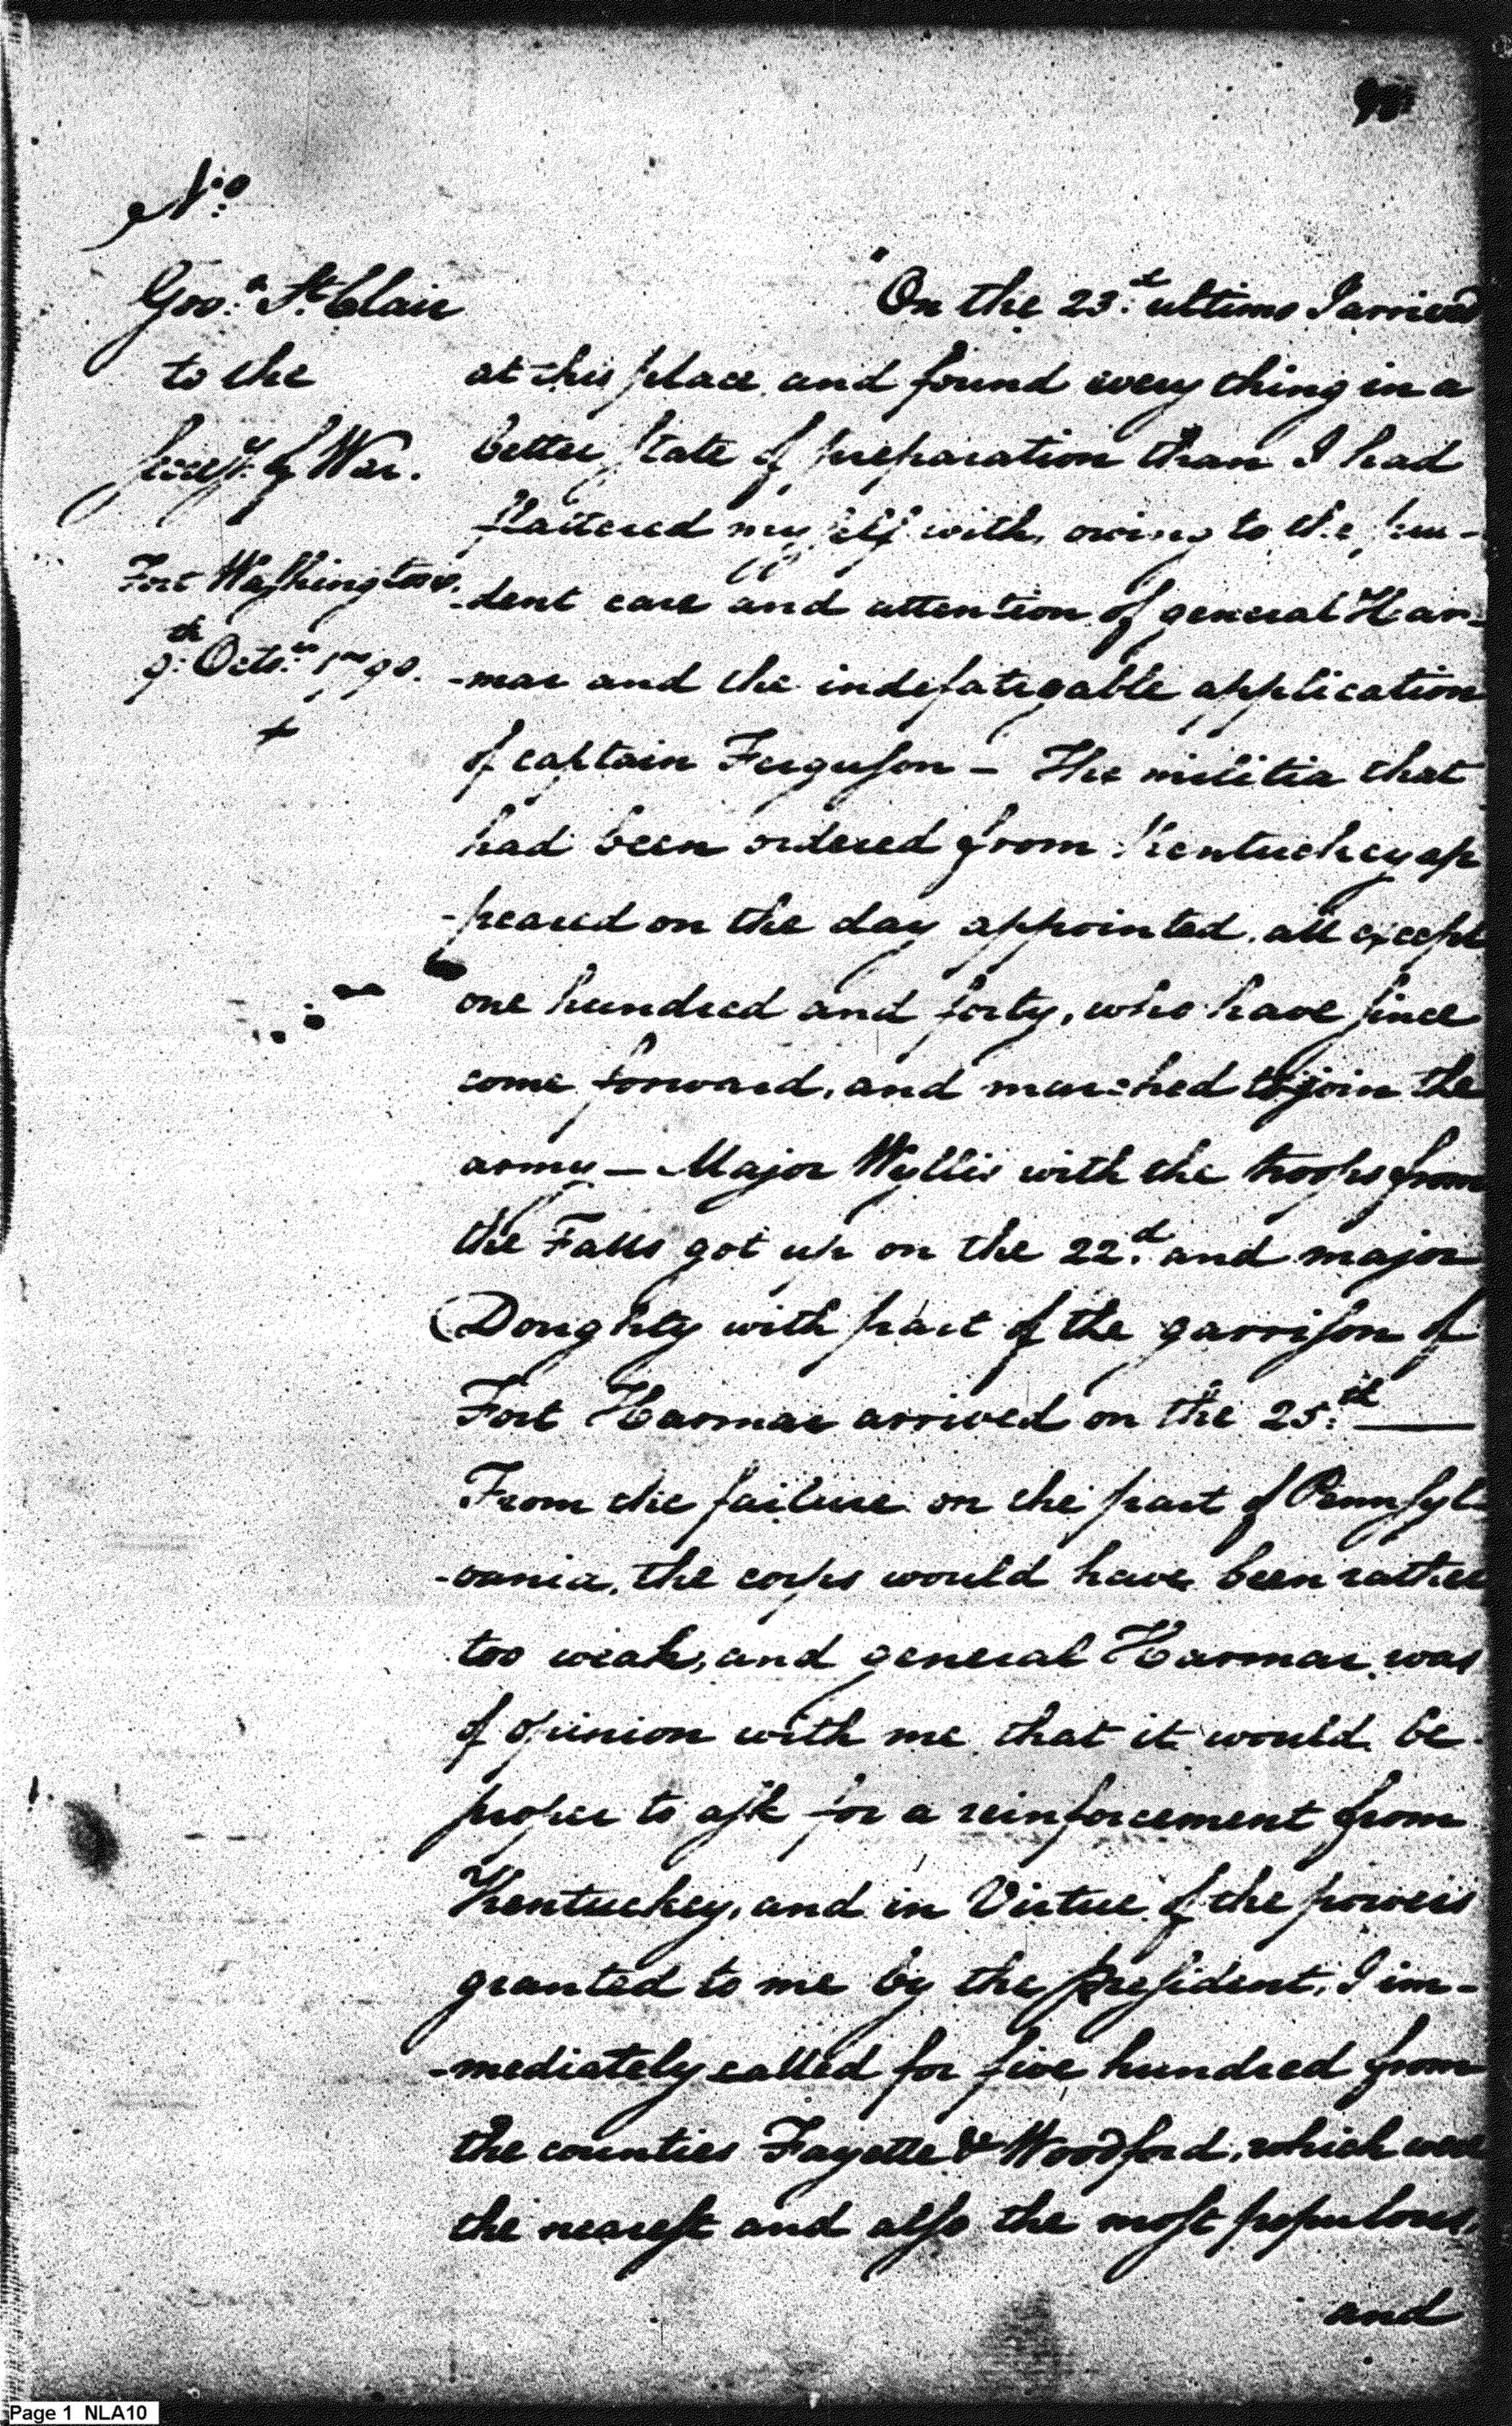 No.
Gov.r St. Clair
to the
Secy. of War.
Fort Washington.
9.th Octo.r 1790.
+
"On the 23.d ultimo I arrived
at this place and found every thing in a
better state of preparation than I had
flattered myself with, owing to the pru-
-dent care and attention of general Har-
-mar and the indefatigable application
of captain Ferguson – The militia that
had been ordered from Kentuckey ap
-peared on the day appointed, all except
one hundred and forty, who have since
come forward, and marched to join the
army – Major Wyllis with the troops from
the Falls got up on the 22.d and major
Doughty with part of the garrison of
Fort Harmar arrived on the 25.th ——
From the failure on the part of Pennsyl-
-vania, the corps would have been rather
too weak, and general Harmar was
of opinion with me that it would be
proper to ask for a reinforcement from
Kentuckey, and in Virtue of the powers
granted to me by the president, I im-
-mediately called for five hundred from
the counties Fayette & Woodford, which were
the nearest and also the most populous,
and
Page 1 NLA10